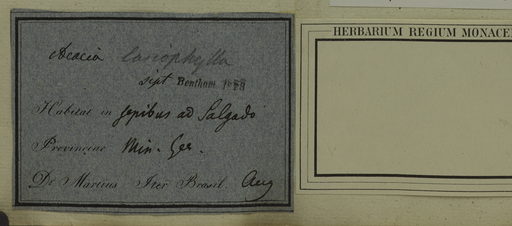 Acacia lasiophylla
sept Bentham
Habitat in sepibus ad Salgado
Provinciae Min. Ger.
Dr. Martius Iter Brasil. Aug
HERBARIUM REGIUM MONACE